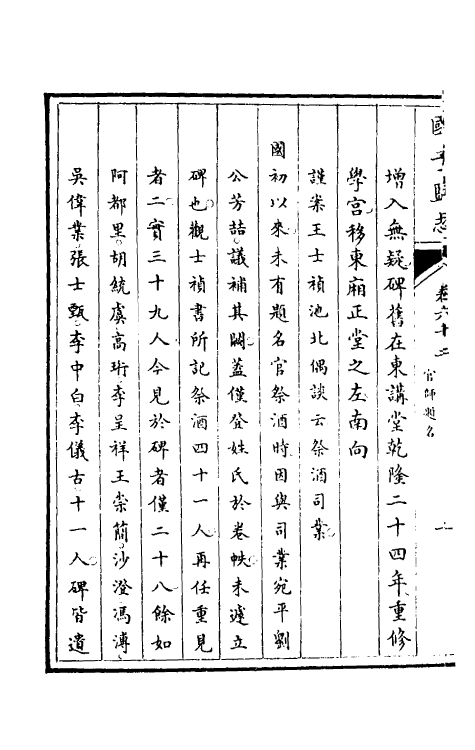 國子監志 卷六十二 官師題名 一
增入無疑碑舊在東講堂乾隆二十四年重修
學宫移東廂正堂之左南向
謹案王士禎池北偶談云祭酒司業
國初以來未有題名官祭酒時因與司業宛平劉
公芳喆議補其闕蓋僅登姓氏於卷帙未遽立
碑也觀士禎書所記祭酒四十一人再任重見
者二實三十九人今見於碑者僅二十八餘如
阿都里胡統虞高珩李呈祥王崇簡沙澄馮溥
吳偉業張士甄李中白李儀古十一人碑皆遺